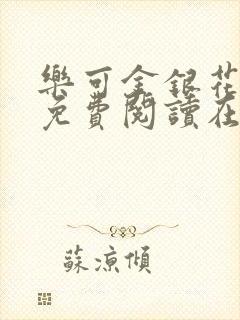 樂可金銀花
免費閱讀在
蘇涼傾